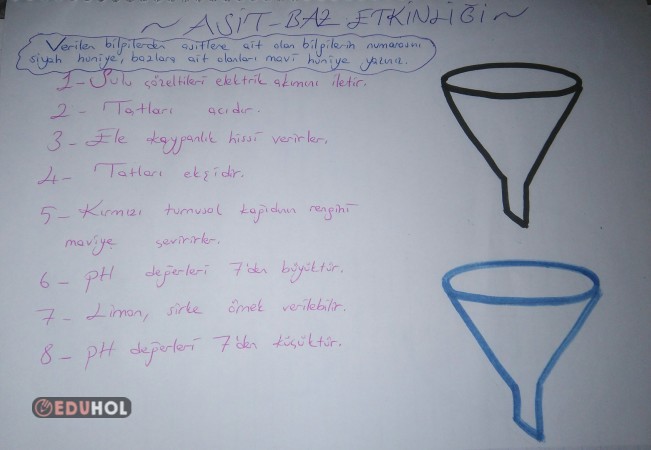 ~ ASİT-BAZ ETKİNLİĞİ ~
Verilen bilgilerden asitlere ait olan bilgilerin numarasını
siyah huniye, bazlara ait olanları mavi huniye yazınız.
1- Sulu çözeltileri elektrik akımını iletir.
2- Tatları acıdır.
3- Ele kayganlık hissi verirler.
4- Tatları ekşidir.
5- Kırmızı turnusol kağıdının rengini
maviye çevirirler.
6- pH değerleri 7'den büyüktür.
7- Limon, sirke örnek verilebilir.
8- pH değerleri 7'den küçüktür.
EDUHOL